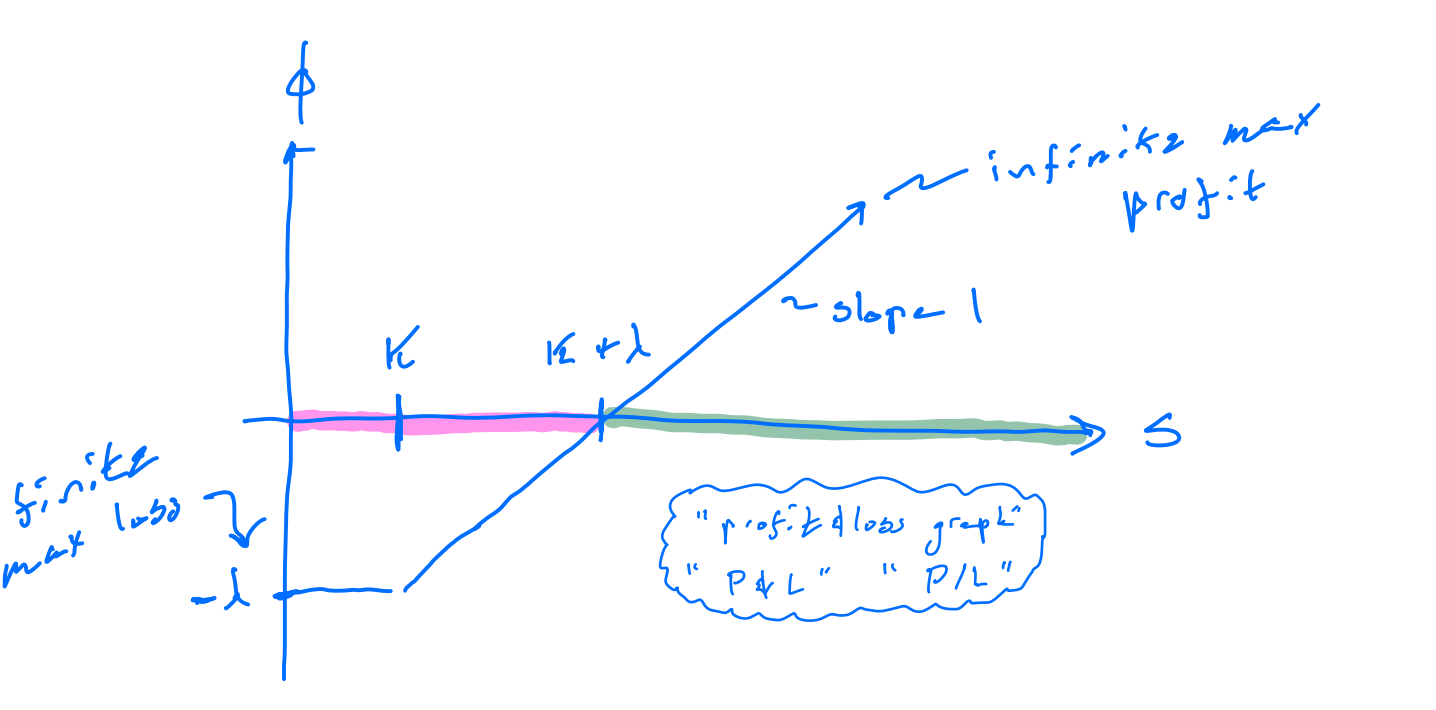 ϕ
infinite max
profit
~ slope 1
K
K + λ
S
finite
max loss
-λ
"profit & loss graph"
"P & L" "P/L"